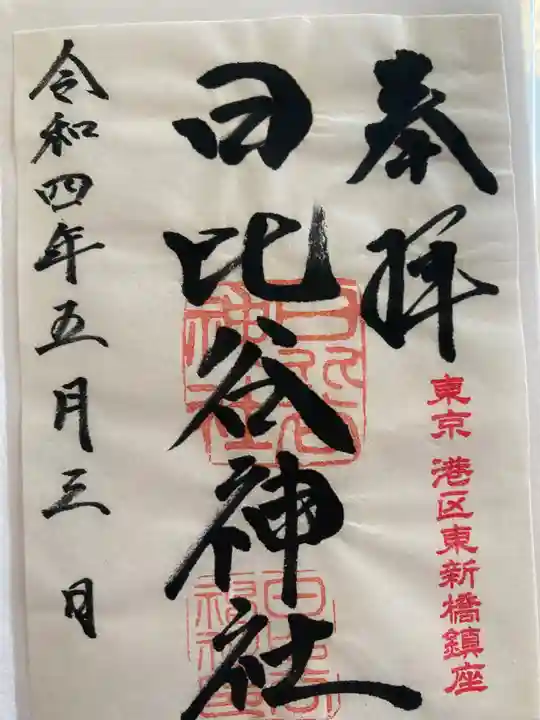 奉拝
東京 港区東新橋鎮座
日比谷神社
日比谷神社
令和四年五月三日